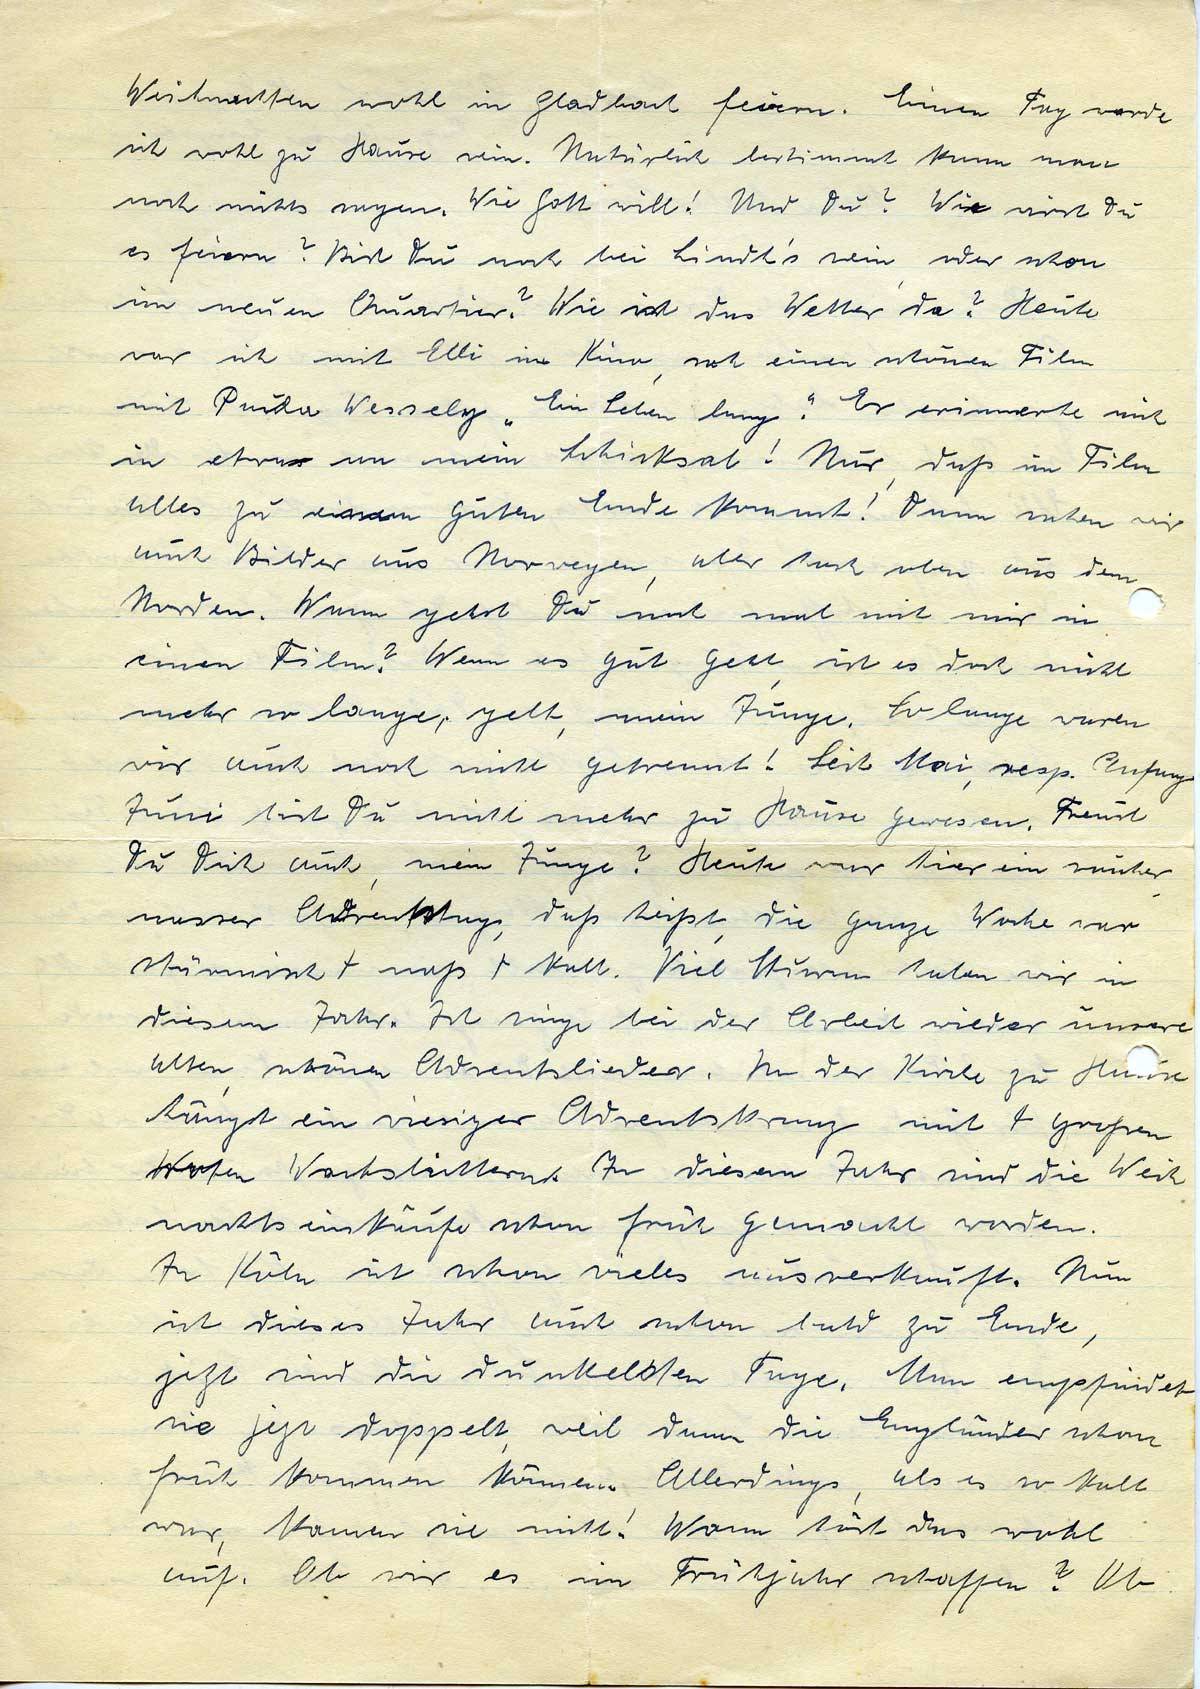 Weihnachten wohl in Gladbach feiern. Einen Tag werde
ich wohl zu Hause sein. Natürlich bestimmt kann man
noch nichts sagen. Wie Gott will! Und Du? Wie wirst Du
es feiern? Bist Du noch bei Lindt's sein, oder schon
im neuen Quartier? Wie ist das Wetter da? Heute
war ich mit Elli im Kino, sah einen schönen Film
mit Paula Wessely „Ein Leben lang". Er erinnerte mich
in etwas an mein Schicksal! Nur, daß im Film
alles zu einem guten Ende kommt! Dann sahen wir
auch Bilder aus Norwegen, aber hoch oben aus dem
Norden. Wann gehst Du mal mit mir in
einen Film? Wenn es gut geht, ist es doch nicht
mehr so lange, gelt, mein Junge. So lange waren
wir auch noch nicht getrennt! Seit Mai, resp. Anfang
Juni bist Du nicht mehr zu Hause gewesen. Freust
Du Dich auch, mein Junge? Heute war hier ein rauher,
nasser Adventstag, daß heißt, die ganze Woche war
stürmisch + naß + kalt. Viel Sturm haben wir in
diesem Jahr. Ich singe bei der Arbeit wieder unsere
alten, schönen Adventslieder. In der Kirche zu Hause
hängt ein riesiger Adventskranz mit 4 großen
Wachslichtern. In diesem Jahr sind die Weih
nachtseinkäufe schon früh gemacht worden.
In Köln ist schon vieles ausverkauft. Nun
ist dieses Jahr auch schon bald zu Ende,
jetzt sind die dunkelsten Tage. Man empfindet
sie jetzt doppelt, weil dann die Engländer schon
früh kommen können. Allerdings, als es so kalt
war, kamen sie nicht! Wann hört das wohl
auf. Ob wir es im Frühjahr schaffen? Ob